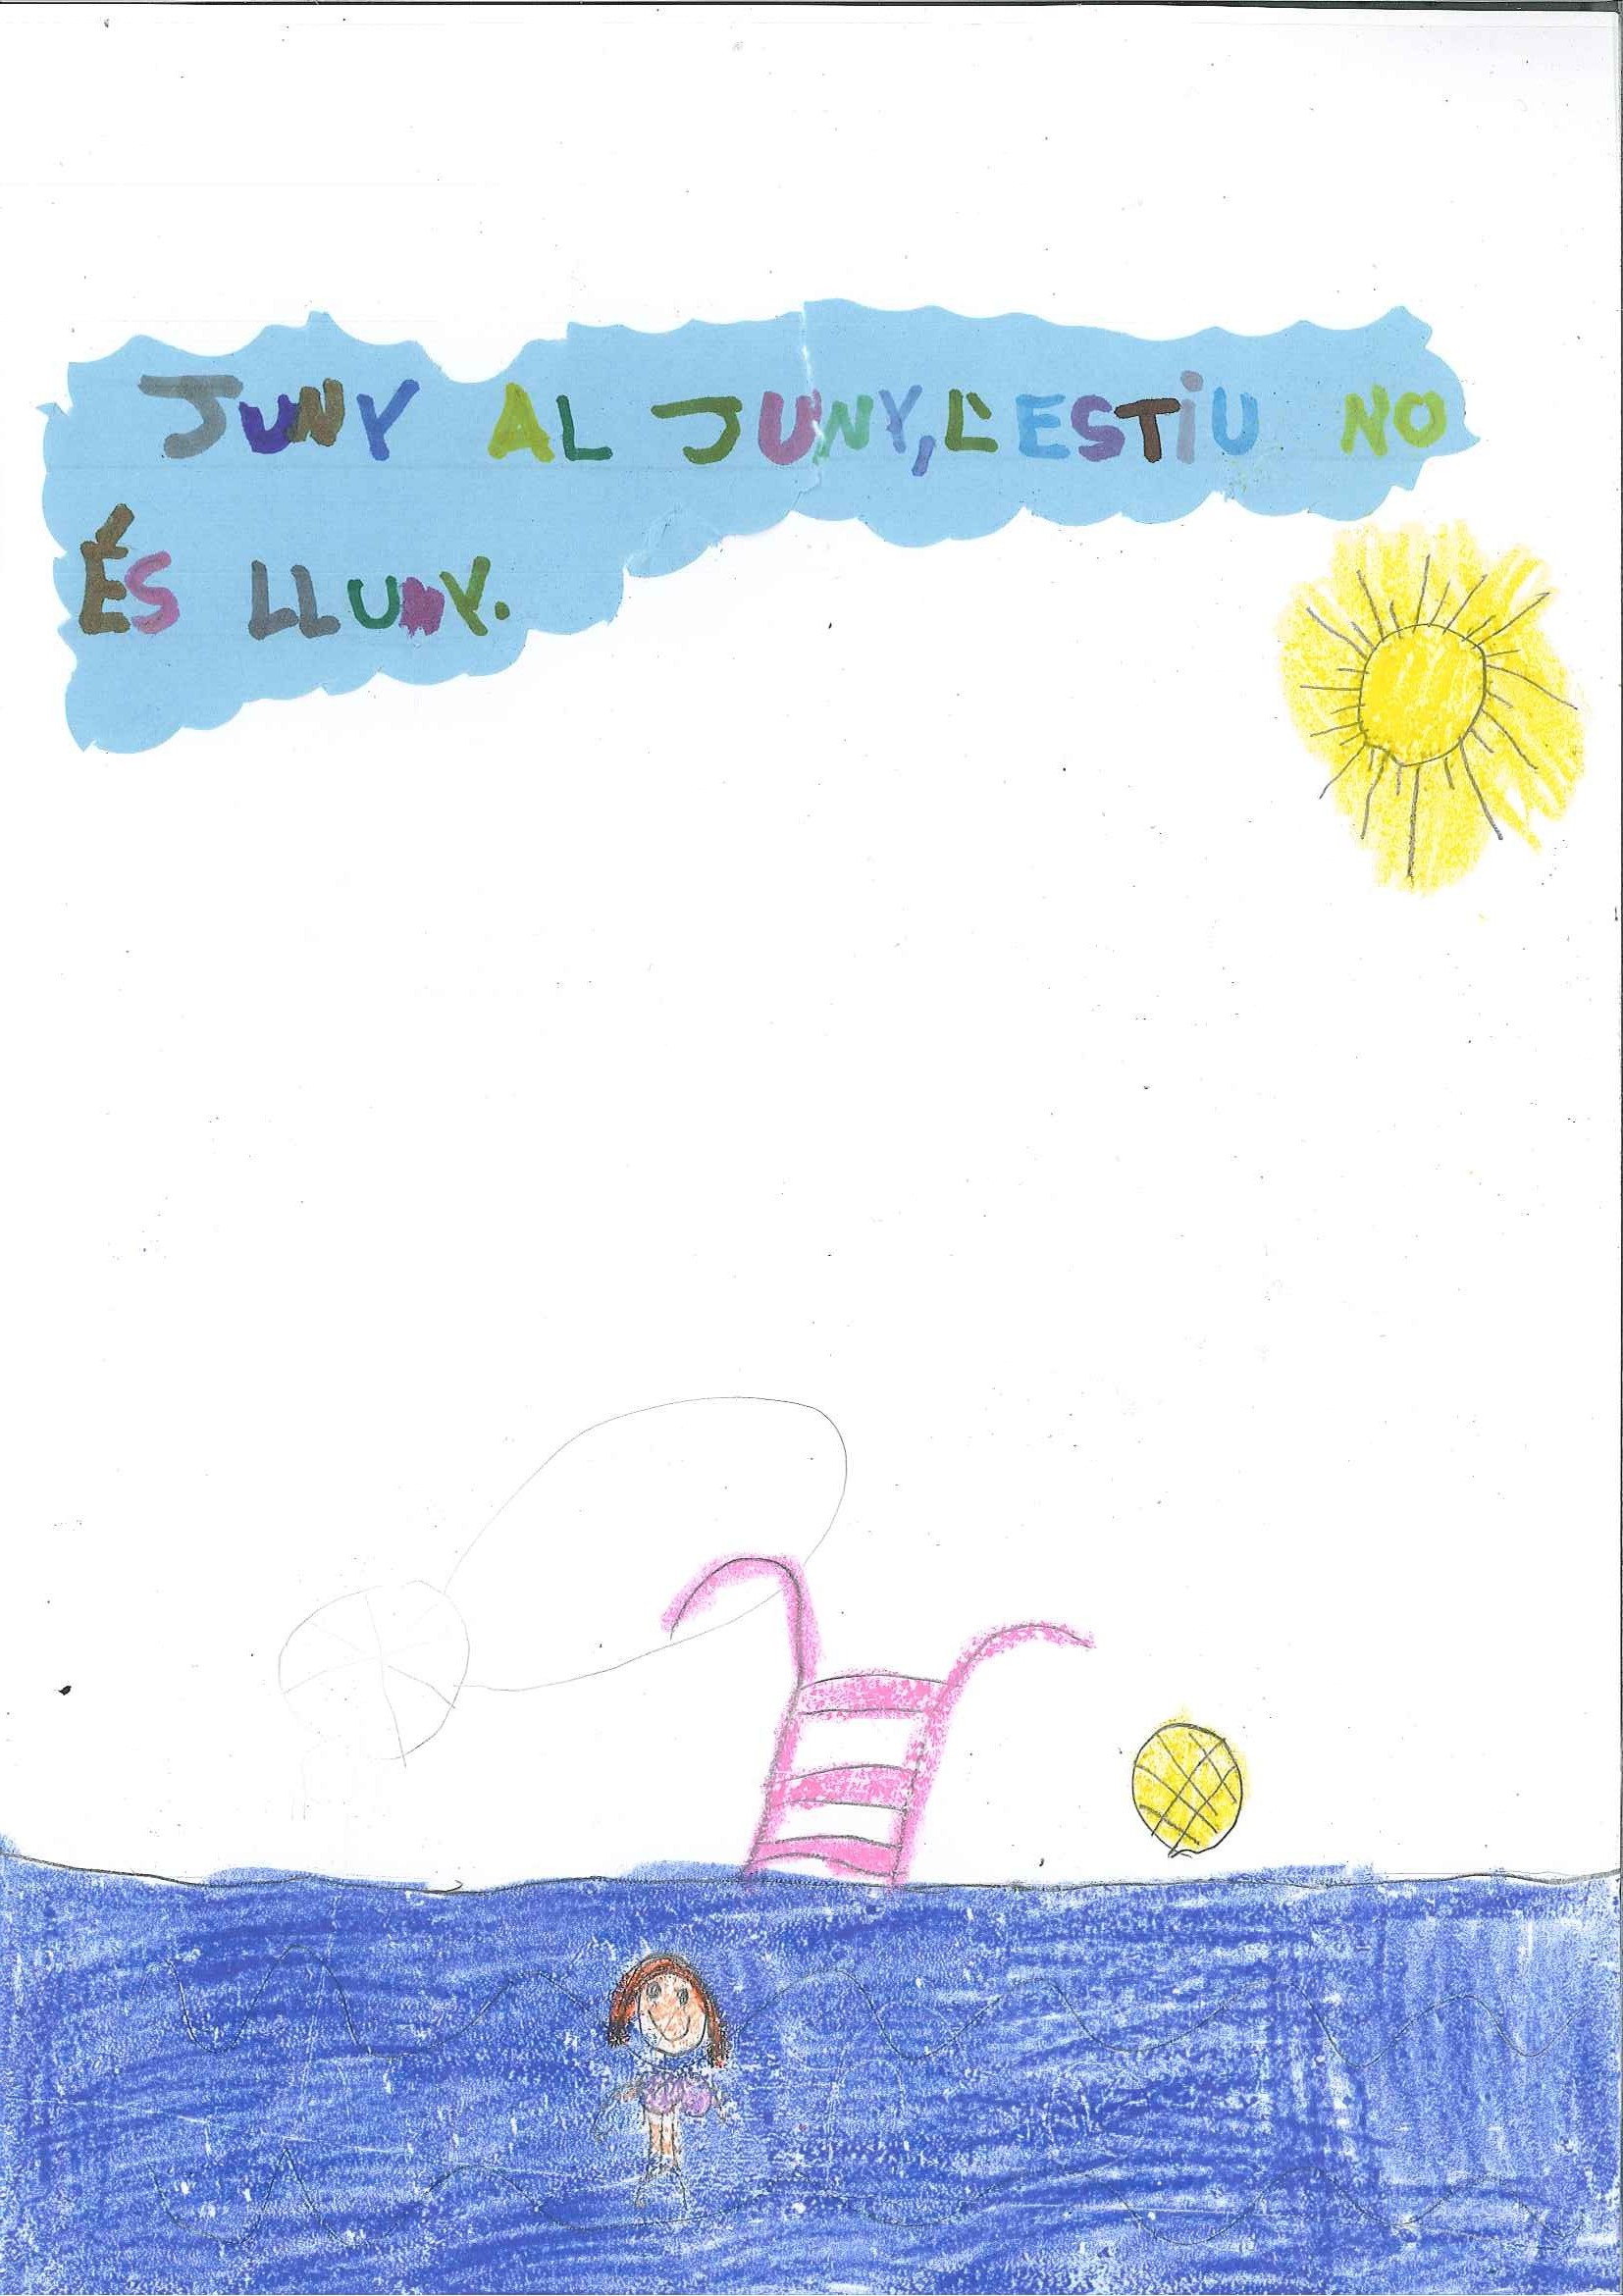 JUNY AL JUNY, L'ESTIU NO
ÉS LLUNY.